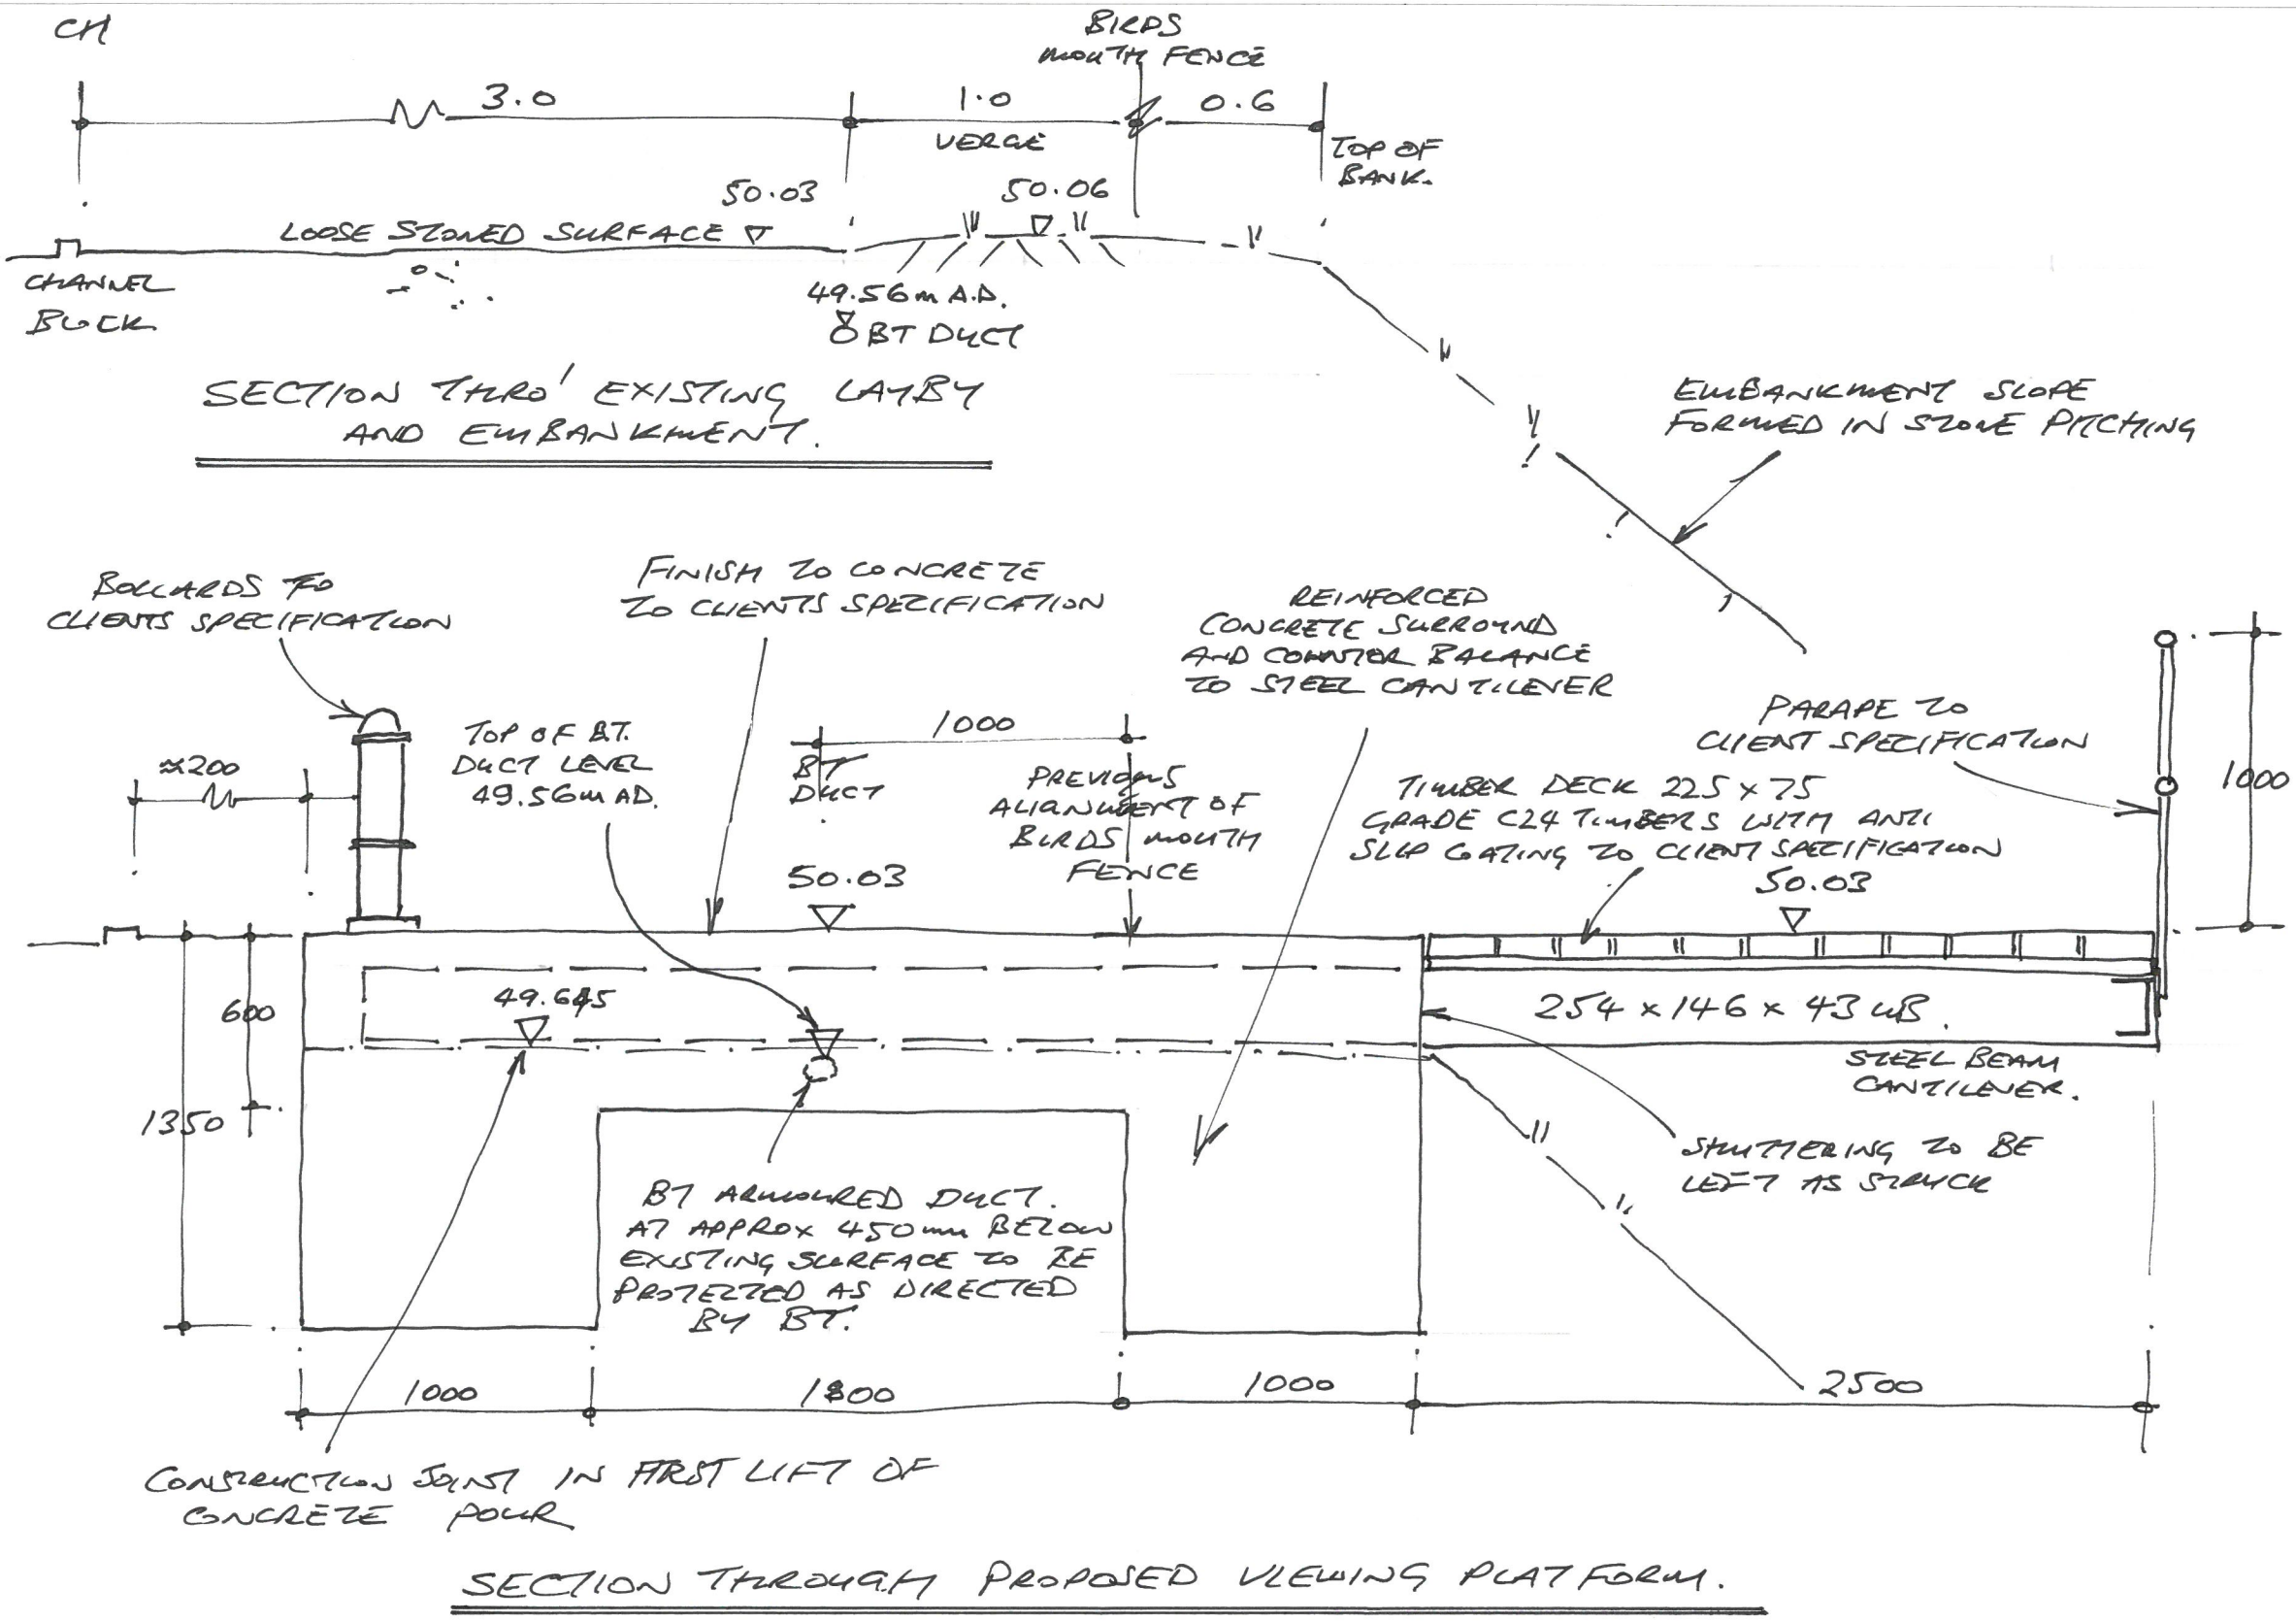 CH
BIRDS
MOUTH FENCE
3.0
1.0
0.6
VERGE
TOP OF
BANK.
50.03
50.06
LOOSE STONED SURFACE
CHANNEL
BLOCK
49.56m A.D.
BT DUCT
SECTION THRO' EXISTING LAYBY
AND EMBANKMENT.
EMBANKMENT SLOPE
FORMED IN STONE PITCHING
BOLLARDS TO
CLIENTS SPECIFICATION
FINISH TO CONCRETE
TO CLIENTS SPECIFICATION
REINFORCED
CONCRETE SURROUND
AND COUNTER BALANCE
TO STEEL CANTILEVER
PARAPE TO
CLIENT SPECIFICATION
1000
≈200
TOP OF BT.
DUCT LEVEL
49.56m AD.
1000
BT
DUCT
PREVIOUS
ALIGNMENT OF
BIRDS MOUTH
FENCE
TIMBER DECK 225 x 75
GRADE C24 TIMBERS WITH ANTI
SLIP COATING TO CLIENT SPECIFICATION
50.03
50.03
600
1350
254 x 146 x 43 UB.
STEEL BEAM
CANTILEVER.
SHUTTERING TO BE
LEFT AS STRUCK
BT ARMOURED DUCT.
AT APPROX 450mm BELOW
EXISTING SURFACE TO BE
PROTECTED AS DIRECTED
BY BT.
1000
1800
1000
2500
CONSTRUCTION JOINT IN FIRST LIFT OF
CONCRETE POUR
SECTION THROUGH PROPOSED VIEWING PLATFORM.